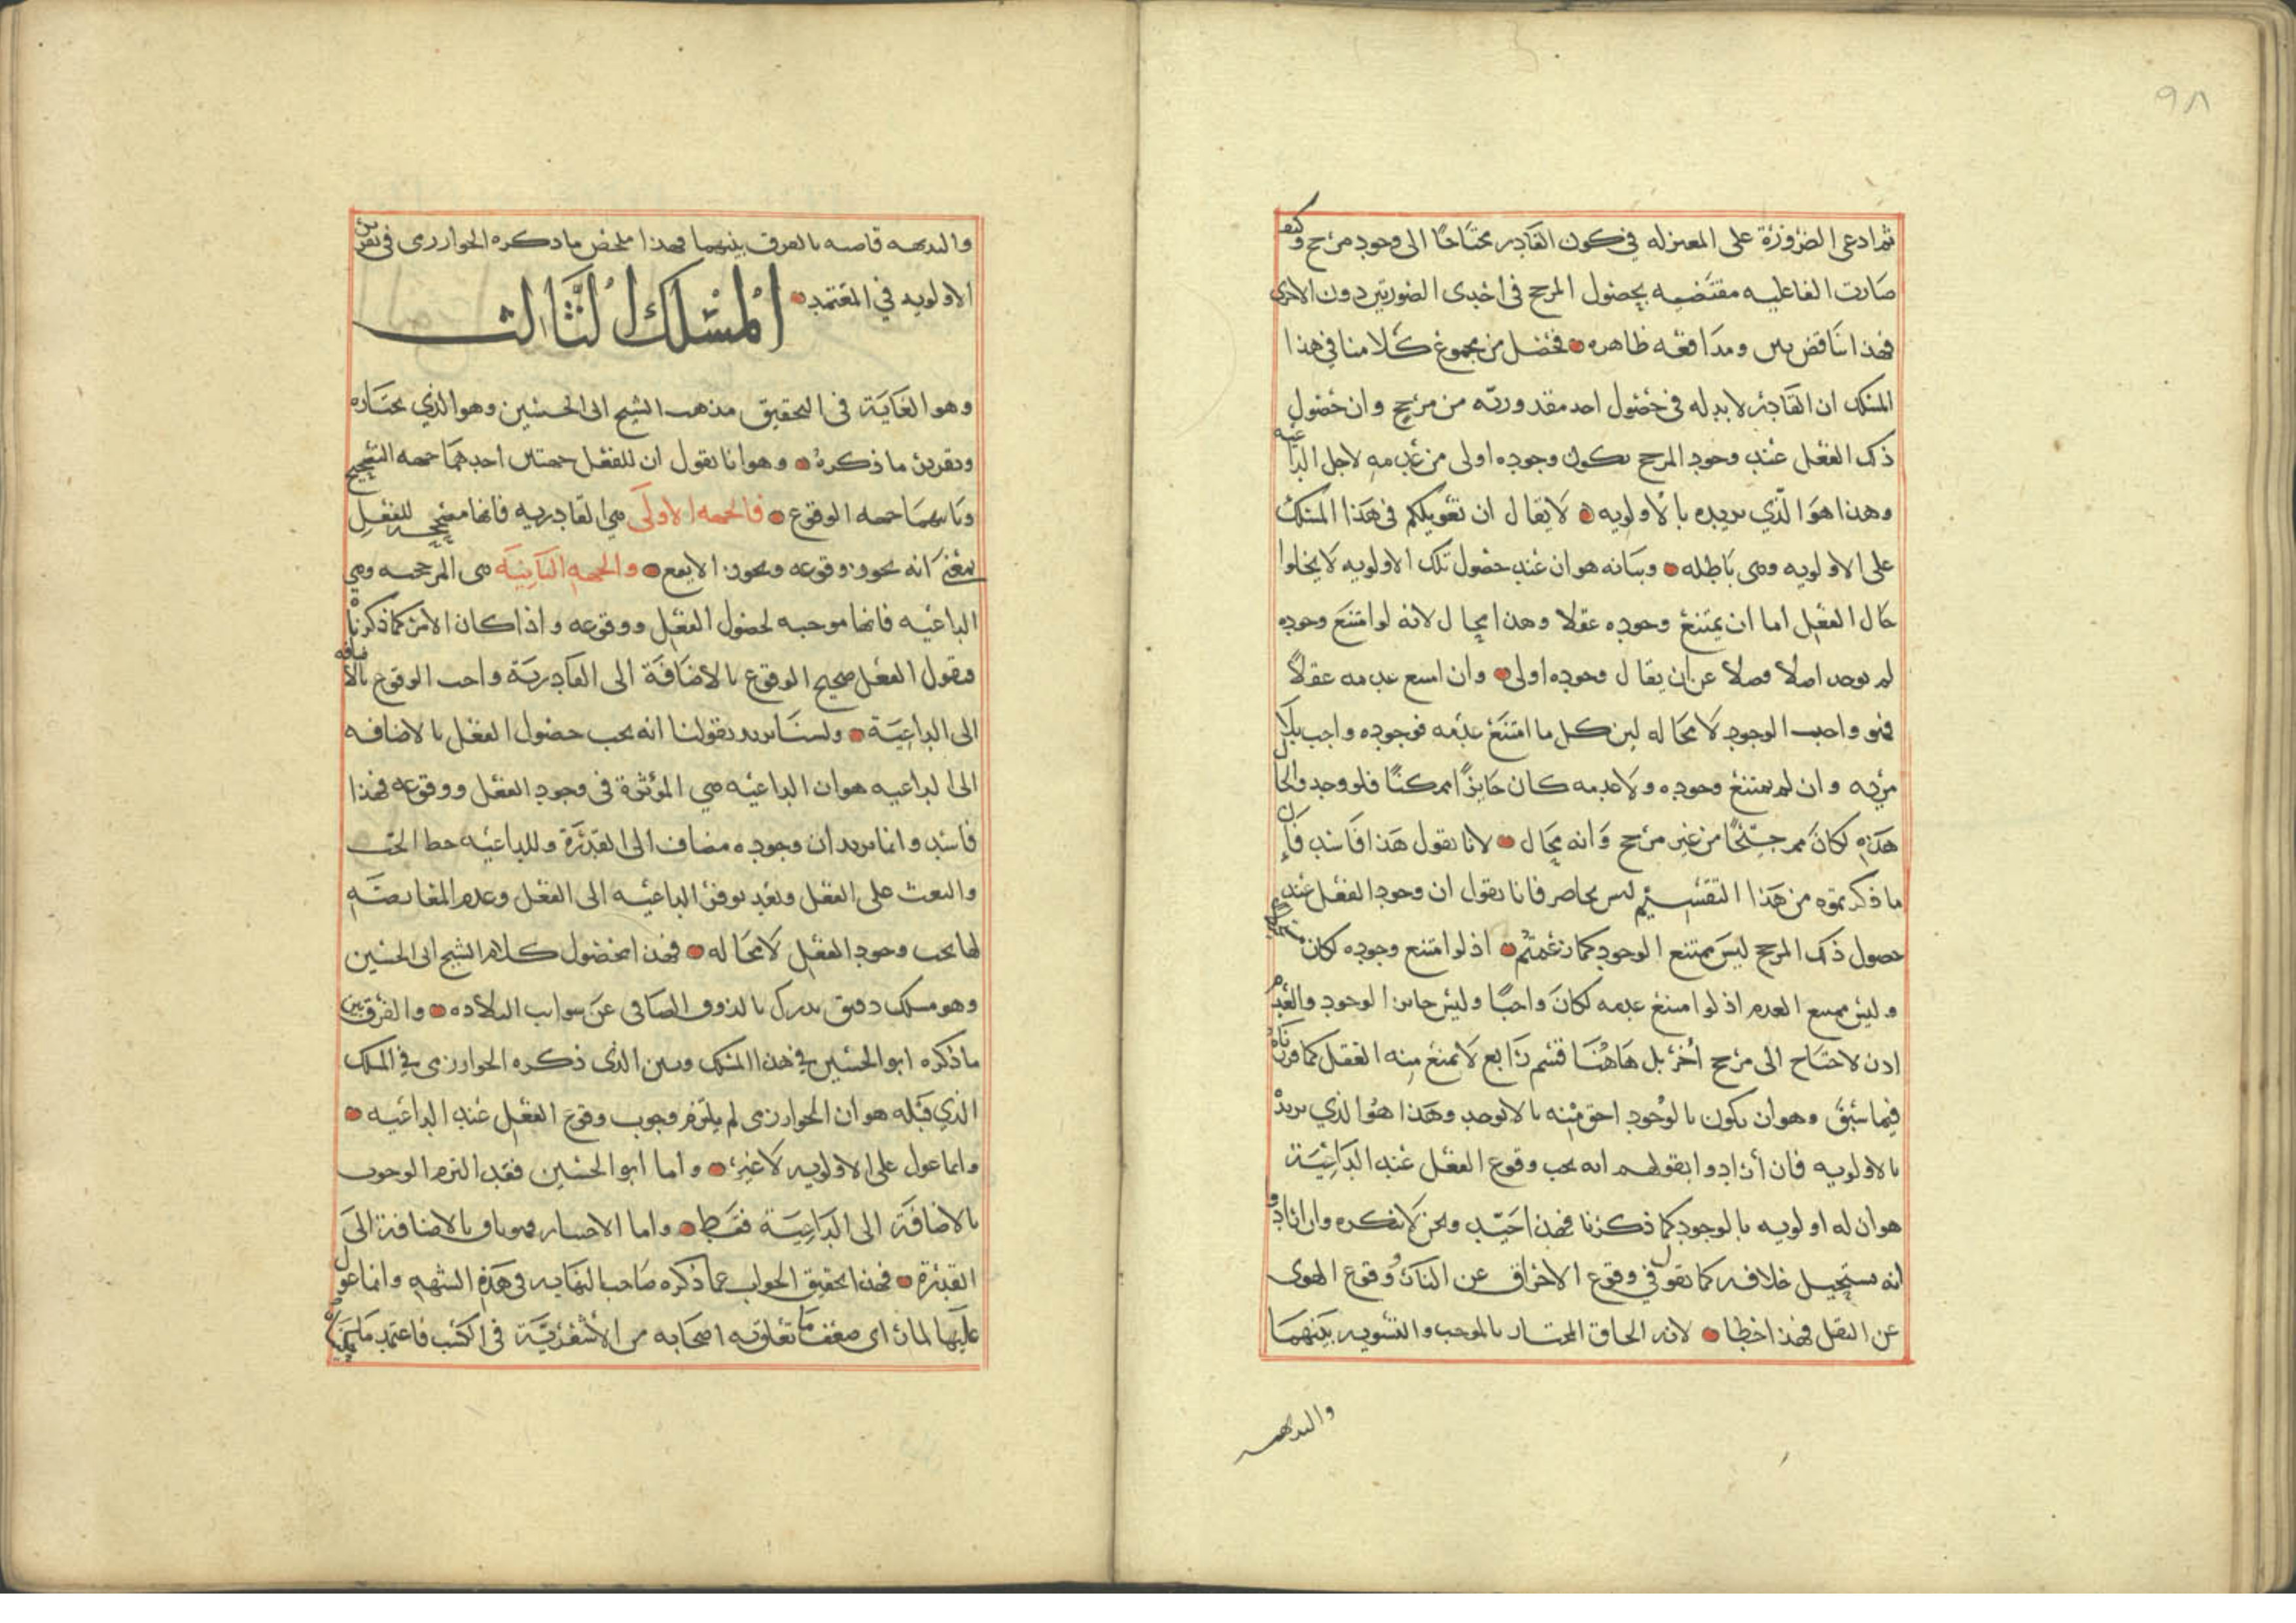 ٩٨
ثم ادعى الضرورة على المعتزله في كون القادر محتاجا الى وجود مرجح وكيف
صارت الفاعليه مقتضيه بحصول المرجح فى احدى الصورتين دون الاخرى
فهذا تناقض بين ومدافعه ظاهره فحصل من مجموع كلامنا في هذا
المسلك ان القادر لا بد له فى حصول احد مقدوريه من مرجح وان حصول
ذلك الفعل عند وجود المرجح يكون وجوده اولى من عدمه لاجل الداعيه
وهذا هو الذي نريده بالاولويه لا يقال ان تعويلكم فى هذا المسلك
على الاولويه وهى باطله وبيانه هو ان عند حصول تلك الاولويه لا يخلوا
حال الفعل اما ان يمتنع وجوده عقلا وهذا محال لانه لو امتنع وجوده
لم يوجد اصلا فضلا عن ان يقال وجوده اولى وان امتنع عدمه عقلا
فهو واجب الوجود لا محاله لين كل ما امتنع عدمه فوجوده واجب بلا
مريه وان لم يمتنع وجوده ولا عدمه كان جايزا ممكنا فلو وجد والحال
هذه لكان مرجحا من غير مرجح وانه محال لانا نقول هذا فاسد فان
ما ذكرتموه من هذا التقسيم ليس بحاصر فانا نقول ان وجود الفعل عند
حصول ذلك المرجح ليس بممتنع الوجود كما زعمتم اذ لو امتنع وجوده لكان
وليس ممتنع العدم اذ لو امتنع عدمه لكان واجبا وليس جايز الوجود والعدم
اذن لاحتاج الى مرجح اخر بل هاهنا قسم رابع لا يمنع منه العقل كما قررناه
فيما سبق وهو ان يكون بالوجود احق منه بالا يوجد وهذا هو الذي نريد
بالاولويه فان أرادوا بقولهم انه يجب وقوع الفعل عند الداعية
هو ان له اولويه بالوجود كما ذكرنا فهذا جيد ونحن لا ننكره وان ارادوا
انه يستحيل خلافه كما نقول في وقوع الاحراق عن النار ووقوع الهوى
عن الثقل فهذا خطا لانه الحاق المختار بالموجب والتسويه بينهما
والبديهه
والبديهه قاضيه بالفرق بينهما فهذا ملخص ما ذكره الخوارزمى فى تقرير
الاولويه في المعتمد المسلك الثالث
وهو الغاية فى التحقيق مذهب الشيخ ابى الحسين وهو الذي نختاره
وتقرير ما ذكره وهو انا نقول ان للفعل جهتين احدهما جهه التصحيح
وثانيهما جهه الوقوع فالجهه الاولى هي القادريه فانها مصححه للفعل
بمعنى انه يجوز وقوعه ويجوز الا يقع والجهه الثانية هى المرجحه وهي
الداعيه فانها موجبه لحصول الفعل ووقوعه واذا كان الامر كما ذكرناه
فنقول الفعل صحيح الوقوع بالاضافة الى القادرية واجب الوقوع بالاضافه
الى الداعية ولسنا نريد بقولنا انه يجب حصول الفعل بالاضافه
الى الداعيه هو ان الداعيه هي المؤثرة فى وجود الفعل ووقوعه فهذا
فاسد وانما نريد ان وجوده مضاف الى القدرة وللداعيه حظ الحث
والبعث على الفعل وبعد توفر الداعيه الى الفعل وعدم المعارضة
لها يجب وجود الفعل لا محاله فهذا محصول كلام الشيخ ابى الحسين
وهو مسلك دقيق يدرك بالذوق الصافى عن شوايب البلاده والفرق بين
ما ذكره ابو الحسين في هذا المسلك وبين الذى ذكره الخوارزمى في المسلك
الذي قبله هو ان الخوارزمى لم يلتزم وجوب وقوع الفعل عند الداعيه
وانما عول على الاولويه لا غير واما ابو الحسين فقد التزم الوجوب
بالاضافة الى الداعية فقط واما الاختيار فهو باق بالاضافة الى
القدرة فهذا تحقيق الجواب عما ذكره صاحب النهايه فى هذه الشبهه وانما عول
عليها لما راى ضعف ما تعلق به اصحابه من الأشعرية فى الكسب فاعتمد